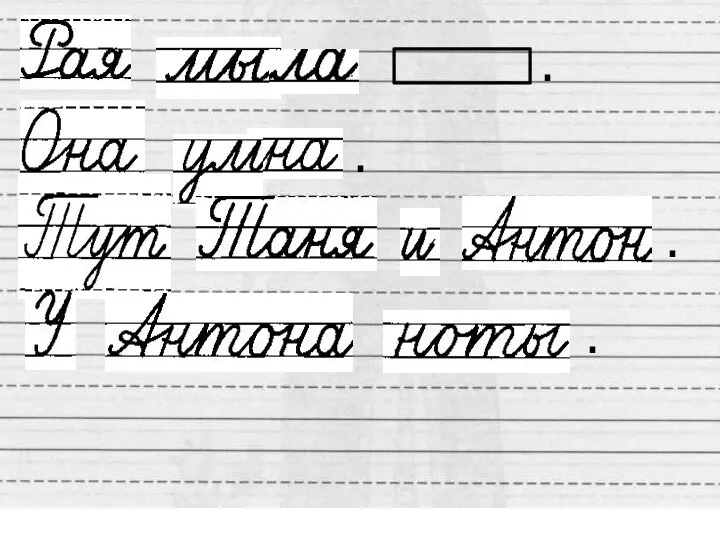 Рая мыла .
Она умна .
Тут Таня и Антон .
У Антона ноты .